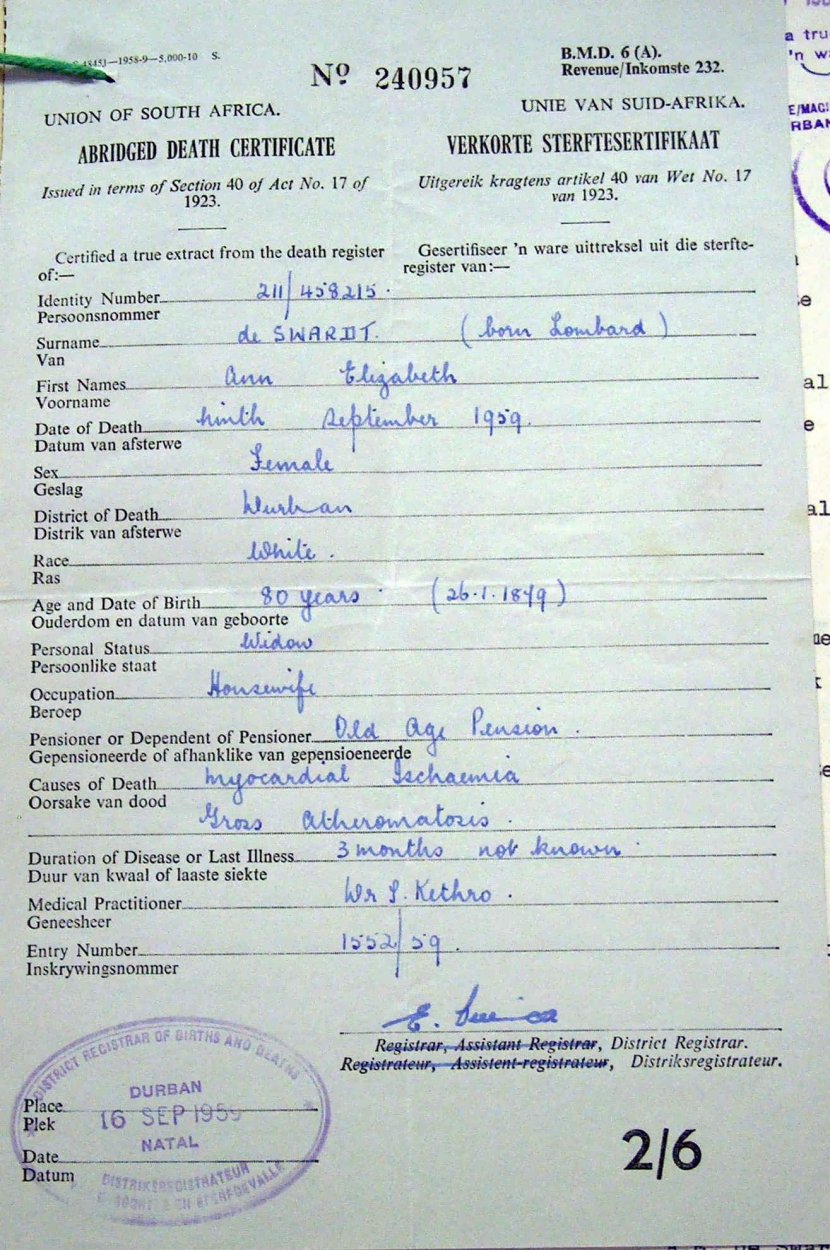 4845J—1958-9—5,000-10 S.
No 240957
B.M.D. 6 (A).
Revenue/Inkomste 232.
UNION OF SOUTH AFRICA.
UNIE VAN SUID-AFRIKA.
ABRIDGED DEATH CERTIFICATE
VERKORTE STERFTESERTIFIKAAT
Issued in terms of Section 40 of Act No. 17 of
1923.
Uitgereik kragtens artikel 40 van Wet No. 17
van 1923.
Certified a true extract from the death register
of:—
Gesertifiseer 'n ware uittreksel uit die sterfte-
register van:—
Identity Number 211/458215.
Persoonsnommer
Surname de SWARDT. (born Lombard)
Van
First Names Ann Elizabeth
Voorname
Date of Death Ninth September 1959.
Datum van afsterwe
Sex Female
Geslag
District of Death Durban
Distrik van afsterwe
Race White.
Ras
Age and Date of Birth 80 years. (26.1.1879)
Ouderdom en datum van geboorte
Personal Status Widow
Persoonlike staat
Occupation Housewife
Beroep
Pensioner or Dependent of Pensioner Old Age Pension.
Gepensioneerde of afhanklike van gepensioeneerde
Causes of Death Myocardial Ischaemia
Oorsake van dood
Gross Atheromatosis.
Duration of Disease or Last Illness 3 months not known.
Duur van kwaal of laaste siekte
Medical Practitioner Dr S. Kethro.
Geneesheer
Entry Number 1552/59.
Inskrywingsnommer
E.
Registrar, Assistant Registrar, District Registrar.
Registrateur, Assistent-registrateur, Distriksregistrateur.
DISTRICT REGISTRAR OF BIRTHS AND DEATHS
DURBAN
Place
16 SEP 1959
Plek
NATAL
Date
Datum
DISTRIKSREGISTRATEUR
EN STERFGEVALLE
2/6
a tru
'n wa
E/MAGI
RBAN
al
e
al